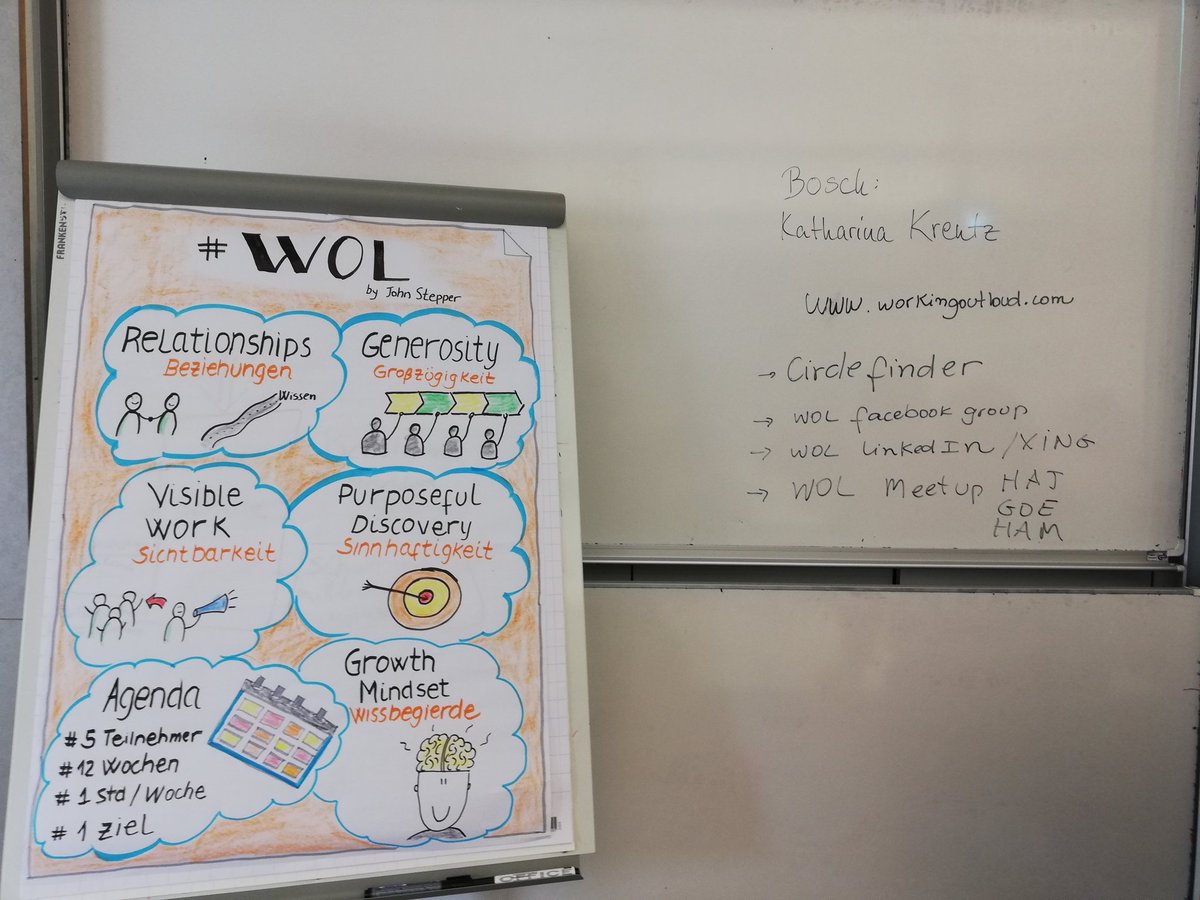 FRANKEN
# WOL
by John Stepper
Relationships
Beziehungen
Wissen
Generosity
Großzügigkeit
Visible
Work
Sichtbarkeit
Purposeful
Discovery
Sinnhaftigkeit
Agenda
#5 Teilnehmer
#12 Wochen
#1 Std/Woche
#1 Ziel
Growth
Mindset
Wissbegierde
OFFICE
Bosch:
Katharina Krentz
www.workingoutloud.com
→ Circlefinder
→ WOL facebook group
→ WOL LinkedIn/XING
→ WOL Meetup HAJ
GOE
HAM